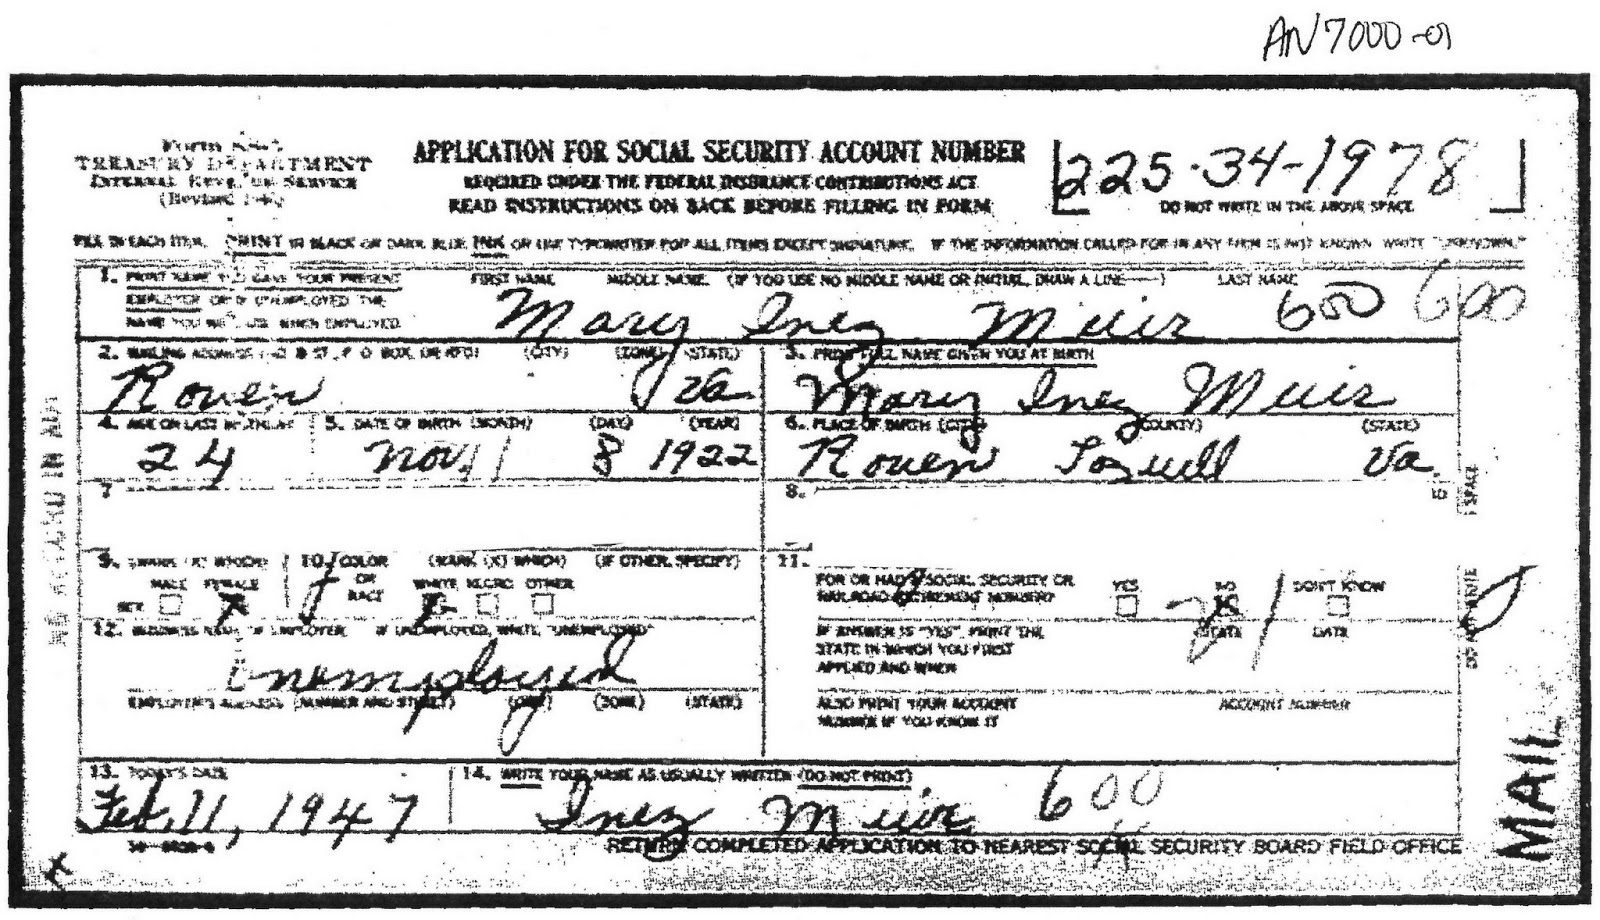 AN7000-01
Form SS-5
TREASURY DEPARTMENT
INTERNAL REVENUE SERVICE
(Revised
APPLICATION FOR SOCIAL SECURITY ACCOUNT NUMBER
REQUIRED UNDER THE FEDERAL INSURANCE CONTRIBUTIONS ACT
READ INSTRUCTIONS ON BACK BEFORE FILLING IN FORM
225-34-1978
DO NOT WRITE IN THE ABOVE SPACE
FILL IN EACH ITEM. PRINT IN BLACK OR DARK BLUE INK OR USE TYPEWRITER FOR ALL ITEMS EXCEPT SIGNATURE. IF THE INFORMATION CALLED FOR IN ANY ITEM IS NOT KNOWN WRITE "UNKNOWN."
1. PRINT NAME YOU GAVE YOUR PRESENT EMPLOYER OR IF UNEMPLOYED THE NAME YOU WILL USE WHEN EMPLOYED.
FIRST NAME MIDDLE NAME. (IF YOU USE NO MIDDLE NAME OR INITIAL, DRAW A LINE—) LAST NAME
Mary Inez Muir 600 600
2. MAILING ADDRESS (NO. & ST., P. O. BOX, OR RFD) (CITY) (ZONE) (STATE)
Rouen Va
3. PRINT FULL NAME GIVEN YOU AT BIRTH
Mary Inez Muir
4. AGE ON LAST BIRTHDAY
24
5. DATE OF BIRTH (MONTH) (DAY) (YEAR)
Nov 8 1922
6. PLACE OF BIRTH (CITY) (COUNTY) (STATE)
Rouen Tazwell Va.
7
8.
9. (MARK (X) WHICH)
SEX MALE FEMALE X
10. COLOR OR RACE (MARK (X) WHICH) (IF OTHER, SPECIFY)
WHITE X NEGRO OTHER
11.
FOR OR HAD A SOCIAL SECURITY OR
RAILROAD RETIREMENT NUMBER?
YES NO X DON'T KNOW
IF ANSWER IS "YES", PRINT THE
STATE IN WHICH YOU FIRST
APPLIED AND WHEN
STATE DATE
ALSO PRINT YOUR ACCOUNT
NUMBER IF YOU KNOW IT
ACCOUNT NUMBER
12. BUSINESS NAME OF EMPLOYER. IF UNEMPLOYED, WRITE "UNEMPLOYED"
Unemployed
EMPLOYER'S ADDRESS (NUMBER AND STREET) (CITY) (ZONE) (STATE)
13. TODAY'S DATE
Feb, 11, 1947
14. WRITE YOUR NAME AS USUALLY WRITTEN (DO NOT PRINT)
Inez Muir 600
RETURN COMPLETED APPLICATION TO NEAREST SOCIAL SECURITY BOARD FIELD OFFICE
MAIL